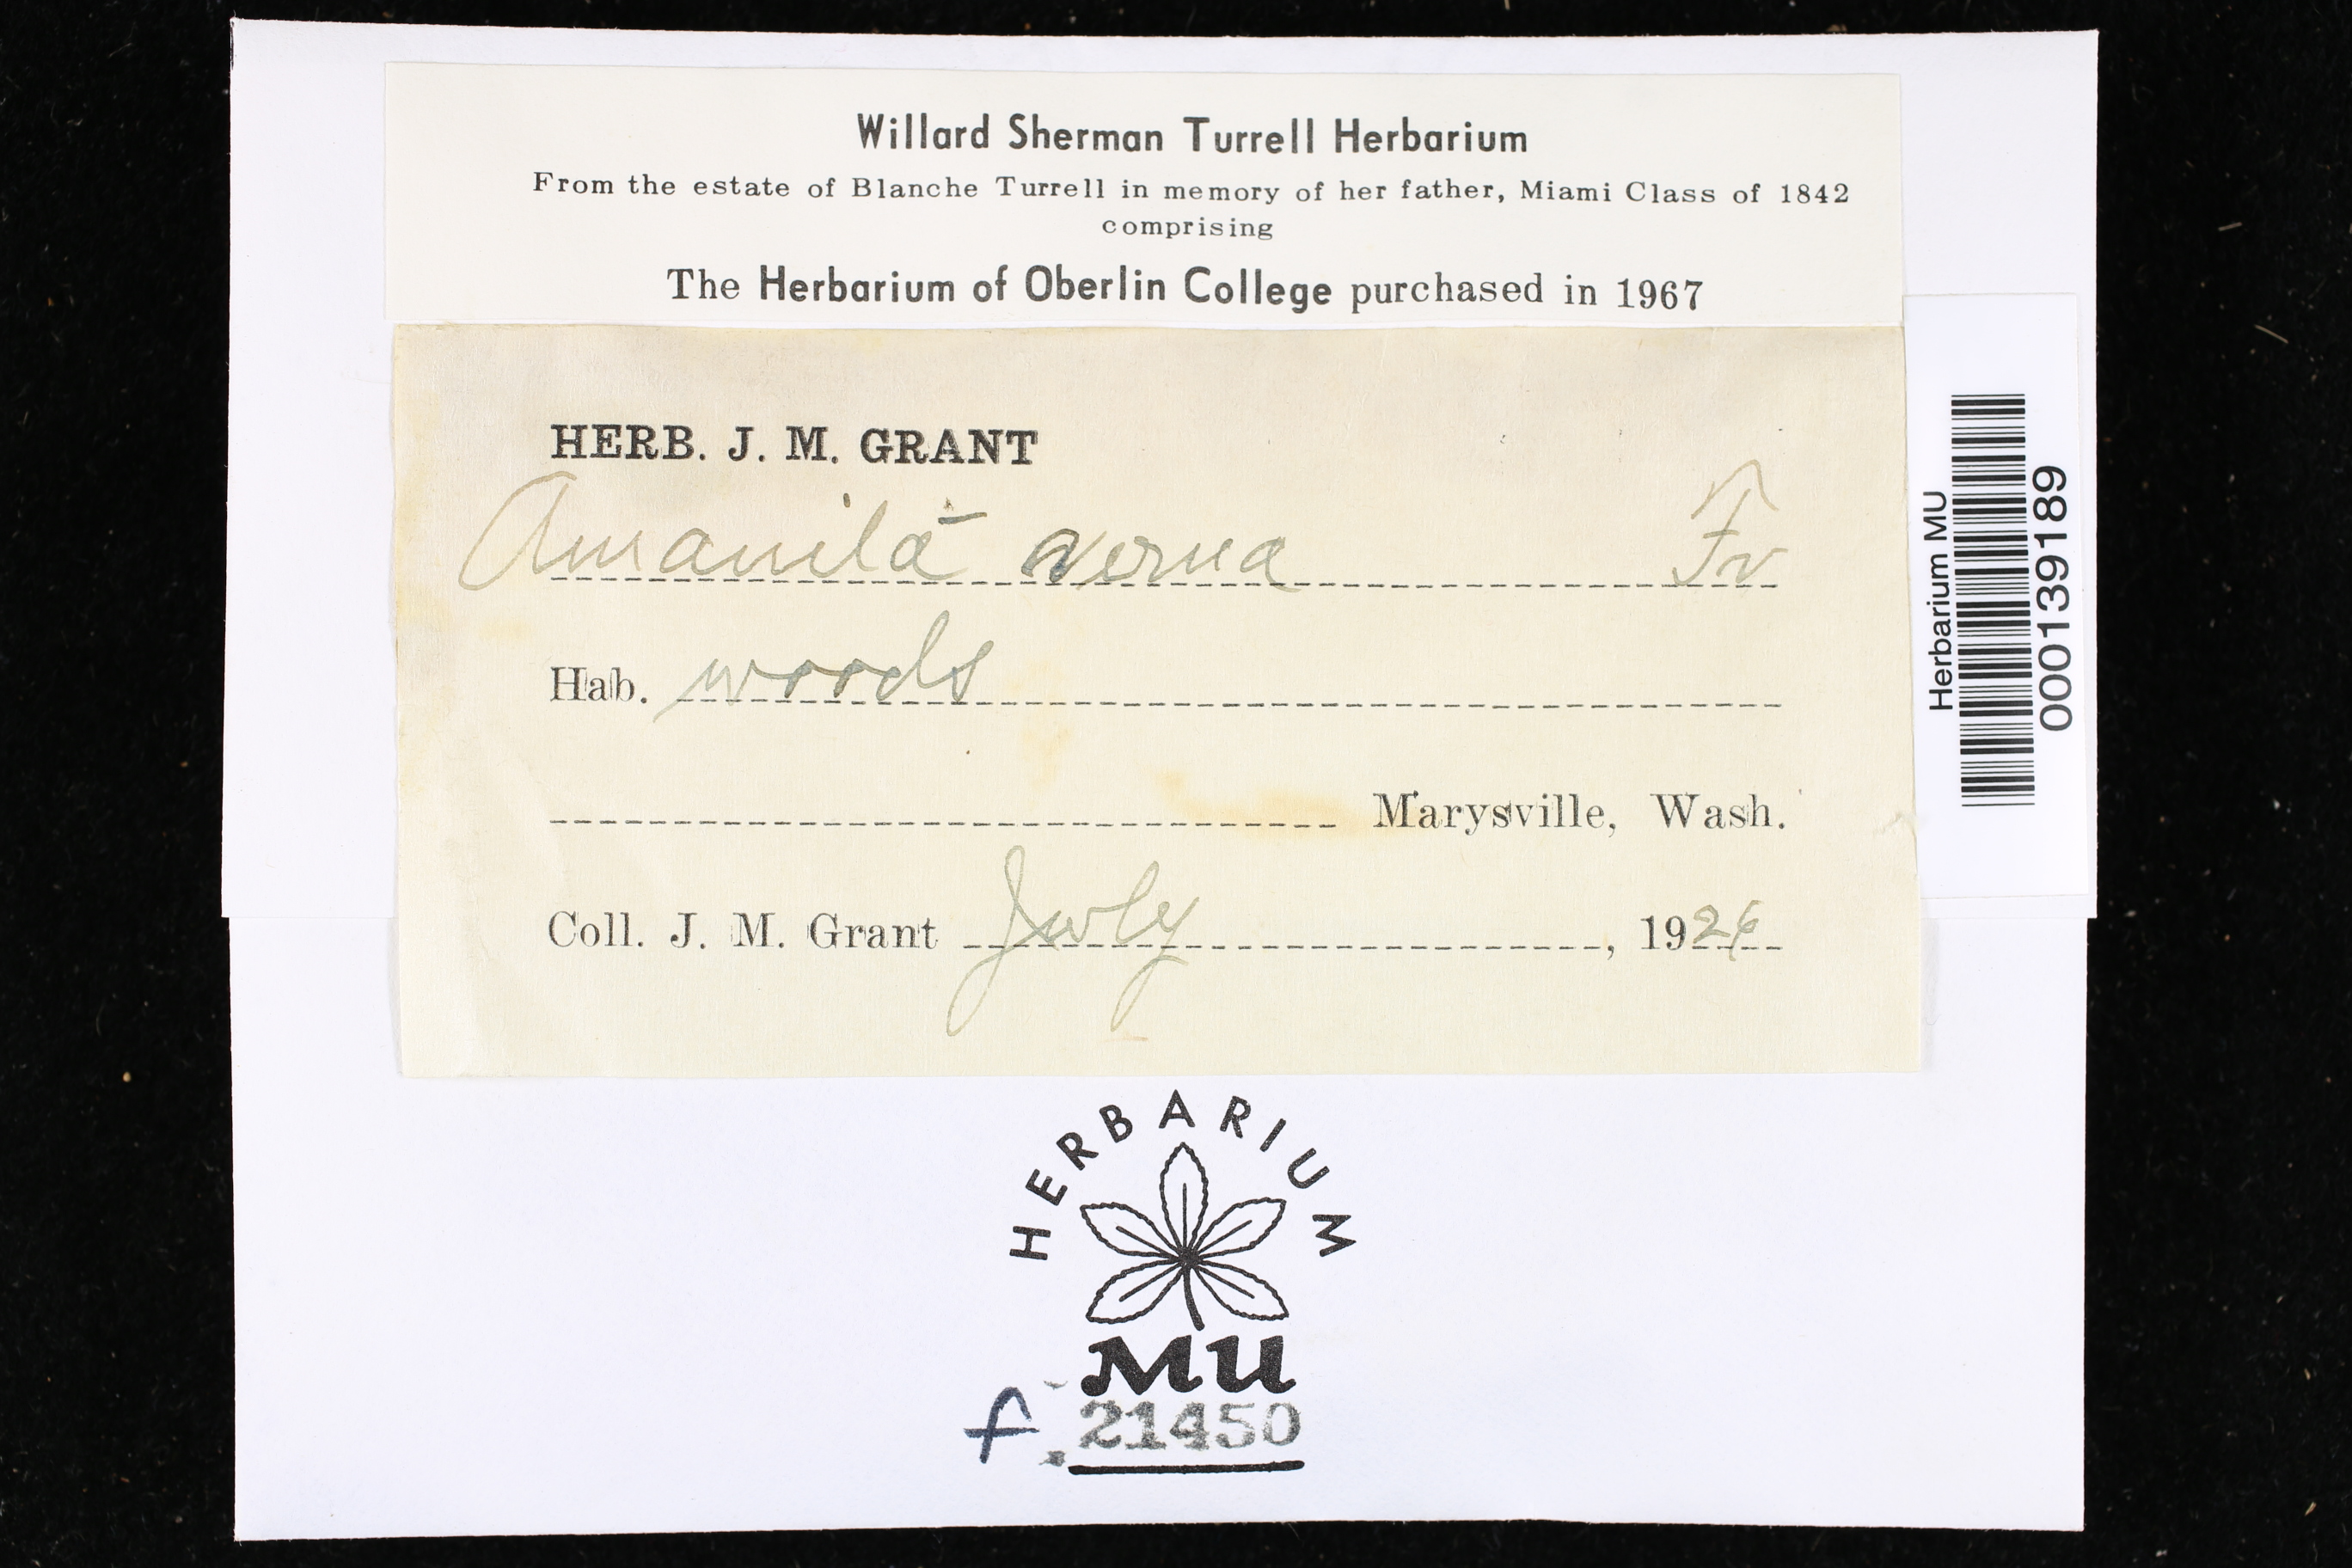 Willard Sherman Turrell Herbarium
From the estate of Blanche Turrell in memory of her father, Miami Class of 1842
comprising
The Herbarium of Oberlin College purchased in 1967
HERB. J. M. GRANT
Amanita verna Fr
Hab. woods
Marysville, Wash.
Coll. J. M. Grant July, 1926
Herbarium MU
000139189
HERBARIUM
MU
f. 21450